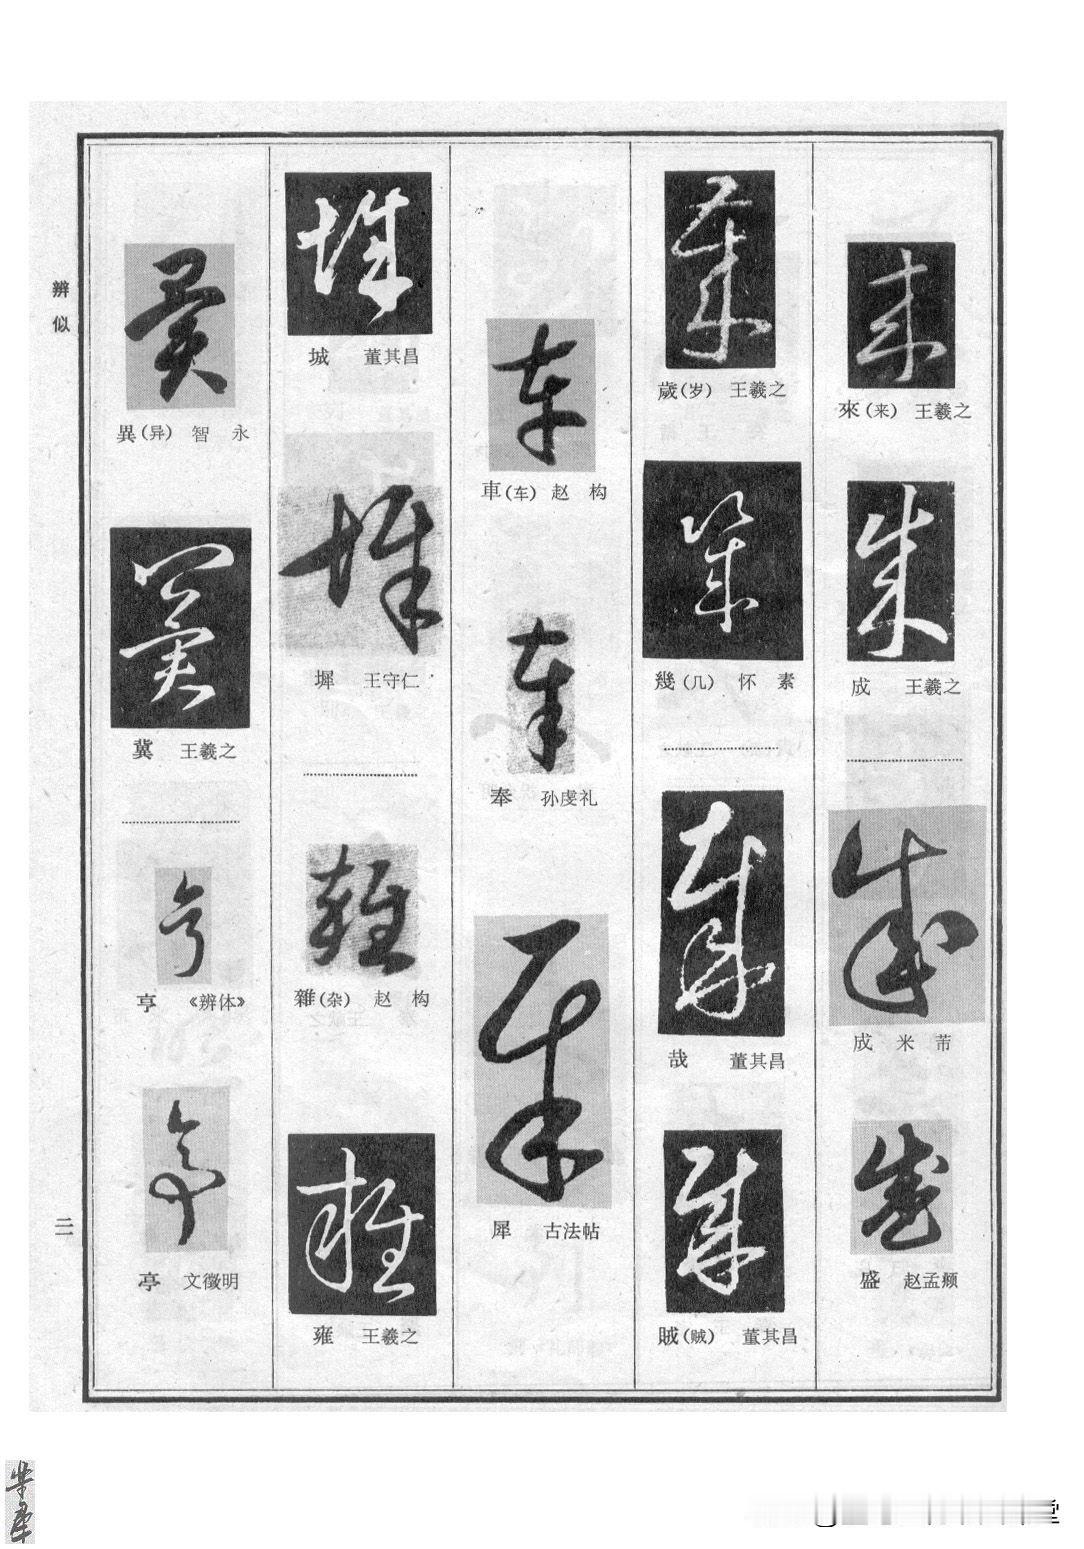 辨似
來(来) 王羲之
成 王羲之
成 米芾
盛 赵孟頫
歲(岁) 王羲之
幾(几) 怀素
哉 董其昌
賊(贼) 董其昌
車(车) 赵构
奉 孙虔礼
犀 古法帖
城 董其昌
墀 王守仁
雜(杂) 赵构
雍 王羲之
異(异) 智永
冀 王羲之
亨 《辨体》
亭 文徵明
二